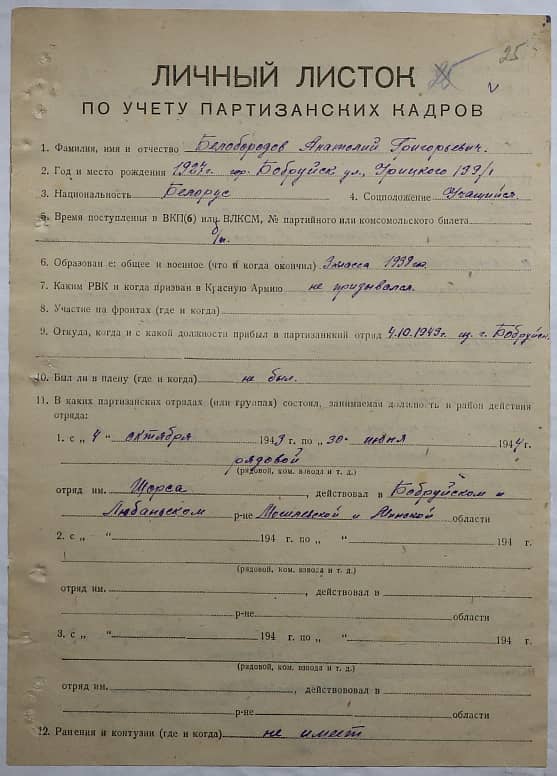 25
ЛИЧНЫЙ ЛИСТОК 25
ПО УЧЕТУ ПАРТИЗАНСКИХ КАДРОВ
1. Фамилия, имя и отчество Белобородов Анатолий Григорьевич.
2. Год и место рождения 1927г. гор. Бобруйск ул, Урицкого 199/1
3. Национальность Белорус 4. Соцположение Учащийся.
5. Время поступления в ВКП(б) или ВЛКСМ, № партийного или комсомольского билета
б/п.
6. Образован е: общее и военное (что и когда окончил) 3 класса 1939 го.
7. Каким РВК и когда призван в Красную Армию не призывался.
8. Участие на фронтах (где и когда)
9. Откуда, когда и с какой должности прибыл в партизанский отряд 4.10.1943г. из г. Бобруйск.
10. Был ли в плену (где и когда) не был.
11. В каких партизанских отрядах (или группах) состоял, занимаемая должность и район действия
отряда:
1. с „ 4 " октября 1943 г. по „ 30 " июня 1944 г.
рядовой
(рядовой, ком. взвода и т. д.)
отряд им. Щорса, действовал в Бобруйском и
Любаньском р-не Могилевской и Минской области
2. с „ " 194 г. по „ " 194 г.
(рядовой, ком. взвода и т. д.)
отряд им. , действовал в
р-не области
3. с „ " 194 г. по „ " 194 г.
(рядовой, ком. взвода и т. д.)
отряд им. , действововал в
р-не области
12. Ранения и контузии (где и когда) не имеет